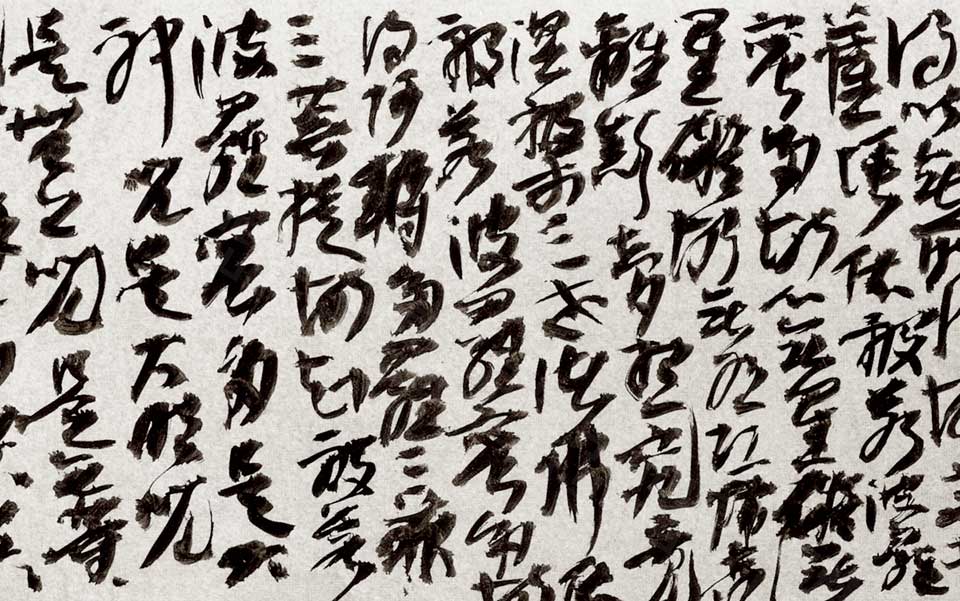 得以無所得故菩
薩埵依般若波羅
蜜多故心無罣礙無
罣礙故無有恐怖遠
離顛倒夢想究竟
涅槃三世諸佛依
般若波羅蜜多故
得阿耨多羅三藐
三菩提故知般若
波羅蜜多是大
神咒是大明咒
是無上咒是無等